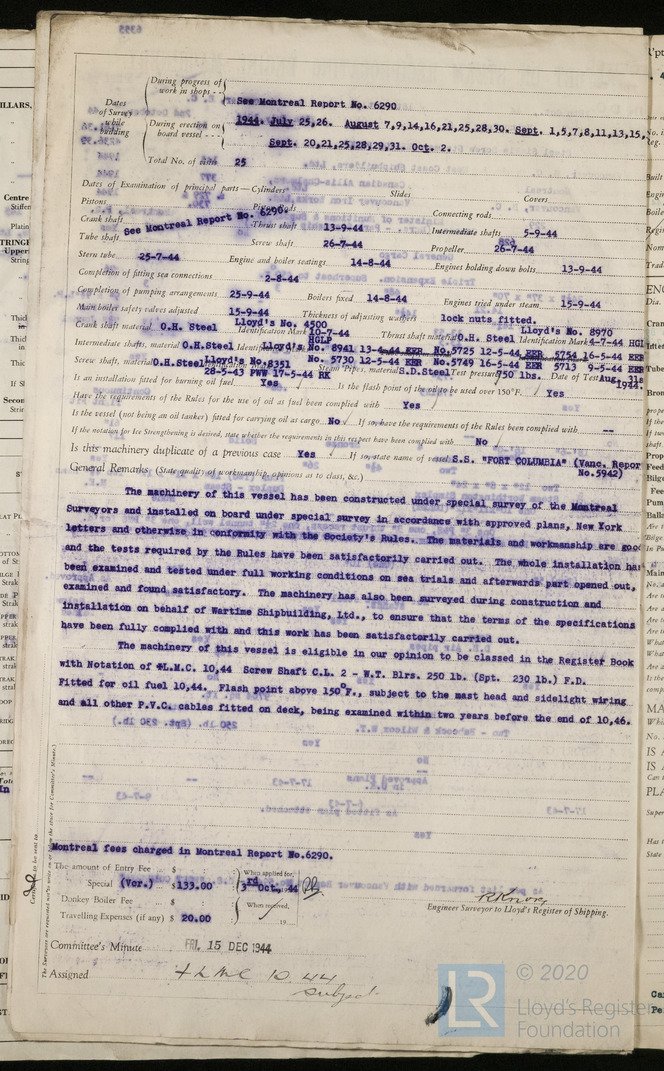 During progress of
work in shops
See Montreal Report No. 6290
Dates
of Survey
while
building
During erection on
board vessel
1944. July 25,26. August 7,9,14,16,21,25,28,30. Sept. 1,5,7,8,11,13,15,
Sept. 20,21,25,28,29,31. Oct. 2.
Total No. of visits 25
Dates of Examination of principal parts—Cylinders Slides Covers
Pistons Piston Rods Connecting rods
Crank shaft See Montreal Report No. 6290. Thrust shaft 13-9-44 Intermediate shafts 5-9-44
Tube shaft Screw shaft 26-7-44 Propeller 26-7-44
Stern tube 25-7-44 Engine and boiler seatings 14-8-44 Engines holding down bolts 13-9-44
Completion of fitting sea connections 2-8-44
Completion of pumping arrangements 25-9-44 Boilers fixed 14-8-44 Engines tried under steam 15-9-44
Main boiler safety valves adjusted 15-9-44 Thickness of adjusting washers lock nuts fitted.
Crank shaft material O.H. Steel Identification Mark Lloyd's No. 4500 HGLP 10-7-44 Thrust shaft material O.H. Steel Identification Mark Lloyd's No. 8970 4-7-44
Intermediate shafts, material O.H.Steel Lloyd's No. 8941 No.5725 12-5-44 EER 5754 16-5-44 EER
Screw shaft, material O.H.Steel Lloyd's No. 8351 28-5-43 No. 5730 12-5-44 EER No.5749 16-5-44 EER 5713 9-5-44 EER
17-5-44 RK Steam Pipes, material S.D.Steel Test pressure 750 lbs. Date of Test Aug. 31st 1944.
Is an installation fitted for burning oil fuel Yes Is the flash point of the oil to be used over 150°F. Yes
Have the requirements of the Rules for the use of oil as fuel been complied with Yes
Is the vessel (not being an oil tanker) fitted for carrying oil as cargo No If so, have the requirements of the Rules been complied with --
If the notation for Ice Strengthening is desired, state whether the requirements in this respect have been complied with No
Is this machinery duplicate of a previous case Yes If so, state name of vessel S.S. "FORT COLUMBIA" (Vanc. Repor
No.5942)
General Remarks (State quality of workmanship, opinions as to class, &c.)
The machinery of this vessel has been constructed under special survey of the Montreal
Surveyors and installed on board under special survey in accordance with approved plans, New York
letters and otherwise in conformity with the Society's Rules. The materials and workmanship are good
and the tests required by the Rules have been satisfactorily carried out. The whole installation has
been examined and tested under full working conditions on sea trials and afterwards part opened out,
examined and found satisfactory. The machinery has also been surveyed during construction and
installation on behalf of Wartime Shipbuilding, Ltd., to ensure that the terms of the specifications
have been fully complied with and this work has been satisfactorily carried out.
The machinery of this vessel is eligible in our opinion to be classed in the Register Book
with Notation of +L.M.C. 10,44 Screw Shaft C.L. 2 - W.T. Blrs. 250 lb. (Spt. 230 lb.) F.D.
Fitted for oil fuel 10,44. Flash point above 150°F., subject to the mast head and sidelight wiring
and all other P.V.C. cables fitted on deck, being examined within two years before the end of 10,46.
Montreal fees charged in Montreal Report No.6290.
The amount of Entry Fee $
Special (Vcr.) $ 133.00
Donkey Boiler Fee $
Travelling Expenses (if any) $ 20.00
When applied for,
3rd Oct., 1944
When received,
19
Engineer Surveyor to Lloyd's Register of Shipping.
Committee's Minute FRI. 15 DEC 1944
Assigned + LMC 10.44
subject.
LR
© 2020
Lloyd's Register
Foundation